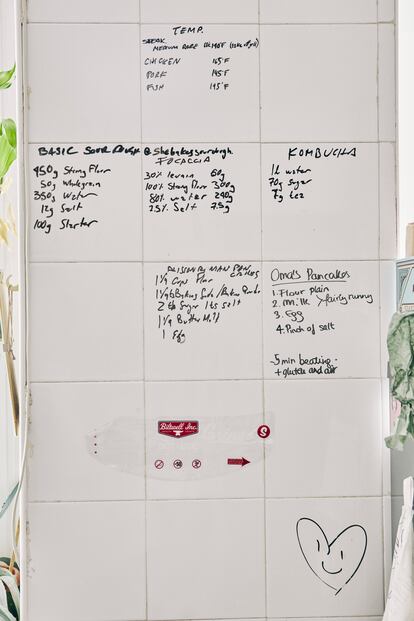 TEMP.
STEAK
MEDIUM RARE
CHICKEN 165°F
PORK 145°F
FISH 145°F
BASIC SOUR DOUGH @shebakessourdough
450g Strong Flour
50g Wholegrain
350g Water
12g Salt
100g Starter
FOCACCIA
30% levain 60g
100% Strong Flour 300g
80% water 240g
2.5% Salt 7.5g
KOMBUCHA
1L water
70g sugar
7g tea
MAN PAN CAKES
1 1/4 Cups Flour
Baking Soda / Baking Powder
2 tb Sugar 1ts salt
1 1/4 Butter Milk
1 Egg
Oma's Pancakes
1. Flour plain
2. Milk > fairly runny
3. Egg
4. Pinch of salt
5 min beating.
+ gluten and air
Biltwell Inc.
S